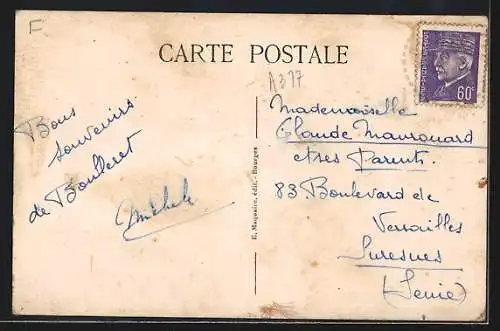 F
CARTE POSTALE
A317
60c
Bons
souvenirs
de Boulleret
Michele
E. Maquaire, édit. - Bourges
Mademoiselle
Claude Maurouard
et ses Parents.
83 Boulevard de
Versailles
Suresnes
(Seine)